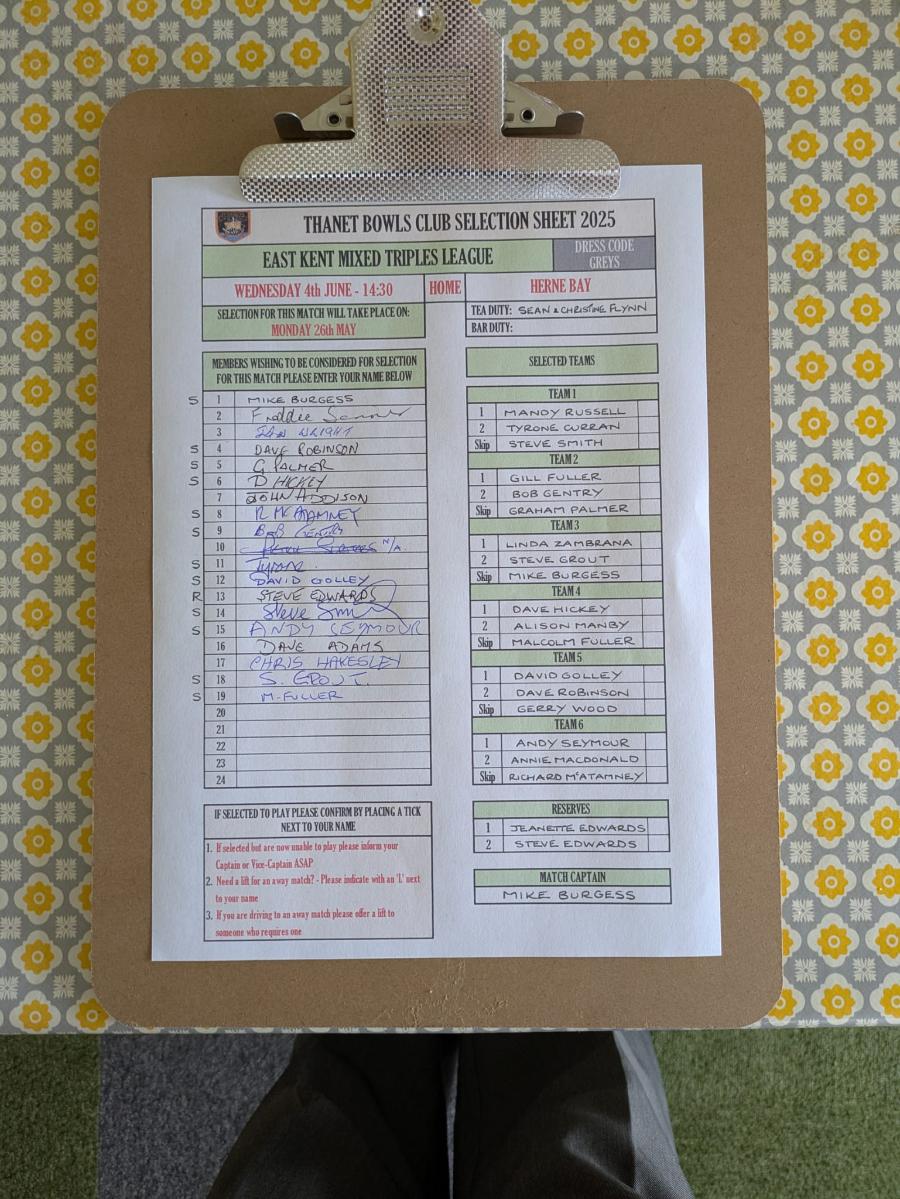 THANET BOWLS CLUB SELECTION SHEET 2025
EAST KENT MIXED TRIPLES LEAGUE
DRESS CODE
GREYS
WEDNESDAY 4th JUNE - 14:30
HOME
HERNE BAY
SELECTION FOR THIS MATCH WILL TAKE PLACE ON:
MONDAY 26th MAY
TEA DUTY: SEAN & CHRISTINE FLYNN
BAR DUTY:
MEMBERS WISHING TO BE CONSIDERED FOR SELECTION
FOR THIS MATCH PLEASE ENTER YOUR NAME BELOW
S 1 MIKE BURGESS
2 Freddie
3 IAN WRIGHT
S 4 DAVE ROBINSON
S 5 G PALMER
S 6 D HICKEY
7 JOHN ADDISON
S 8 R McATAMNEY
S 9 BOB GENTRY
10 N/A.
S 11 Tyrone
S 12 DAVID GOLLEY
R 13 STEVE EDWARDS
S 14 Steve Smith
S 15 ANDY SEYMOUR
16 DAVE ADAMS
17 CHRIS HAKESLEY
S 18 S. GROUT.
S 19 M. FULLER
20
21
22
23
24
IF SELECTED TO PLAY PLEASE CONFIRM BY PLACING A TICK
NEXT TO YOUR NAME
1. If selected but are now unable to play please inform your
Captain or Vice-Captain ASAP
2. Need a lift for an away match? - Please indicate with an 'L' next
to your name
3. If you are driving to an away match please offer a lift to
someone who requires one
SELECTED TEAMS
TEAM 1
1 MANDY RUSSELL
2 TYRONE CURRAN
Skip STEVE SMITH
TEAM 2
1 GILL FULLER
2 BOB GENTRY
Skip GRAHAM PALMER
TEAM 3
1 LINDA ZAMBRANA
2 STEVE GROUT
Skip MIKE BURGESS
TEAM 4
1 DAVE HICKEY
2 ALISON MANBY
Skip MALCOLM FULLER
TEAM 5
1 DAVID GOLLEY
2 DAVE ROBINSON
Skip GERRY WOOD
TEAM 6
1 ANDY SEYMOUR
2 ANNIE MACDONALD
Skip RICHARD McATAMNEY
RESERVES
1 JEANETTE EDWARDS
2 STEVE EDWARDS
MATCH CAPTAIN
MIKE BURGESS